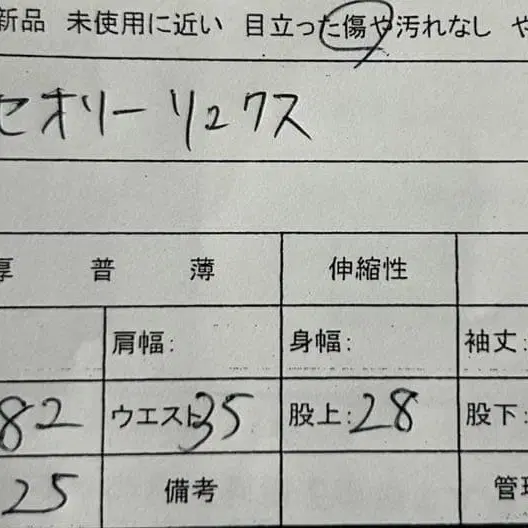 新品 未使用に近い 目立った傷や汚れなし や
セオリーリュクス
厚 普 薄 伸縮性
肩幅: 身幅: 袖丈:
82 ウエスト35 股上:28 股下:
25 備考 管理